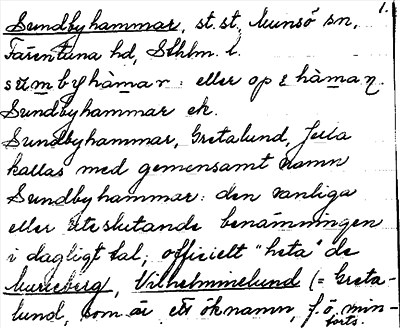 1.
Sundbyhammar, st. st. Munsö sn,
Färentuna hd, Sthlm. l.
sunmbyhàmar: eller op ε hàman
Sundbyhammar ek.
Sundbyhammar, Gretalund, Jella
kallas med gemensamt namn
Sundbyhammar: den vanliga
eller uteslutande benämningen
i dagligt tal, officiellt "heta" de
Marieberg, Vilhelminelund (= Greta-
lund, som är ett öknamn, f. ö. min-
forts.